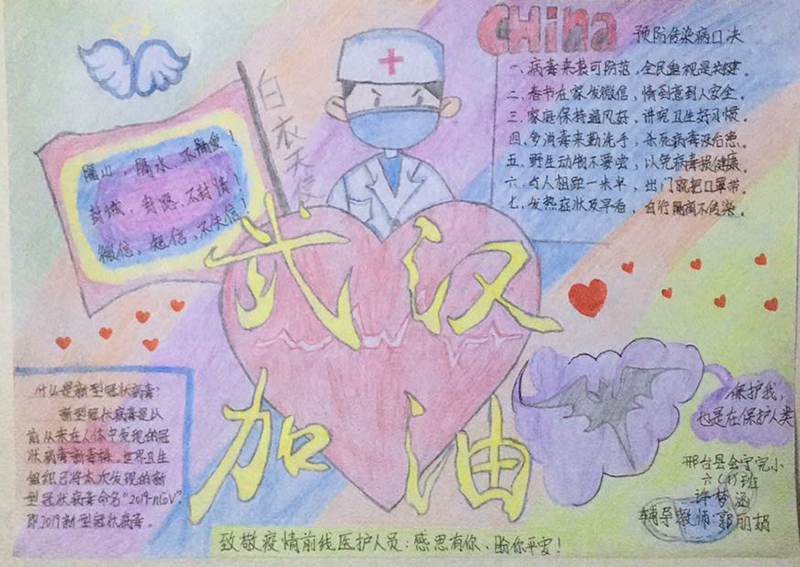 CHina
预防传染病口决
一、病毒来袭可防范，全民重视是关键。
二、春节在家发微信，情到意到人安全。
三、家庭保持通风好，讲究卫生好习惯。
四、多消毒来勤洗手，杀死病毒没后患。
五、野生动物不要尝，以免病毒损健康。
六、与人相距一米半，出门就把口罩带。
七、发热症状及早看，自行隔离不传染。
白衣天使
隔山，隔水，不隔爱！
封城，封路，不封情！
微信，短信，不失信！
武汉
加油
什么是新型冠状病毒？
新型冠状病毒是以
前从未在人体中发现的冠
状病毒新毒株。世界卫生
组织已将本次发现的新
型冠状病毒命名“2019-nCoV”
即2019新型冠状病毒。
保护我，
也是在保护人类
邢台县会宁完小
六(1)班
许梦涵
辅导教师：郭丽娟
致敬疫情前线医护人员：感恩有你、盼你平安！